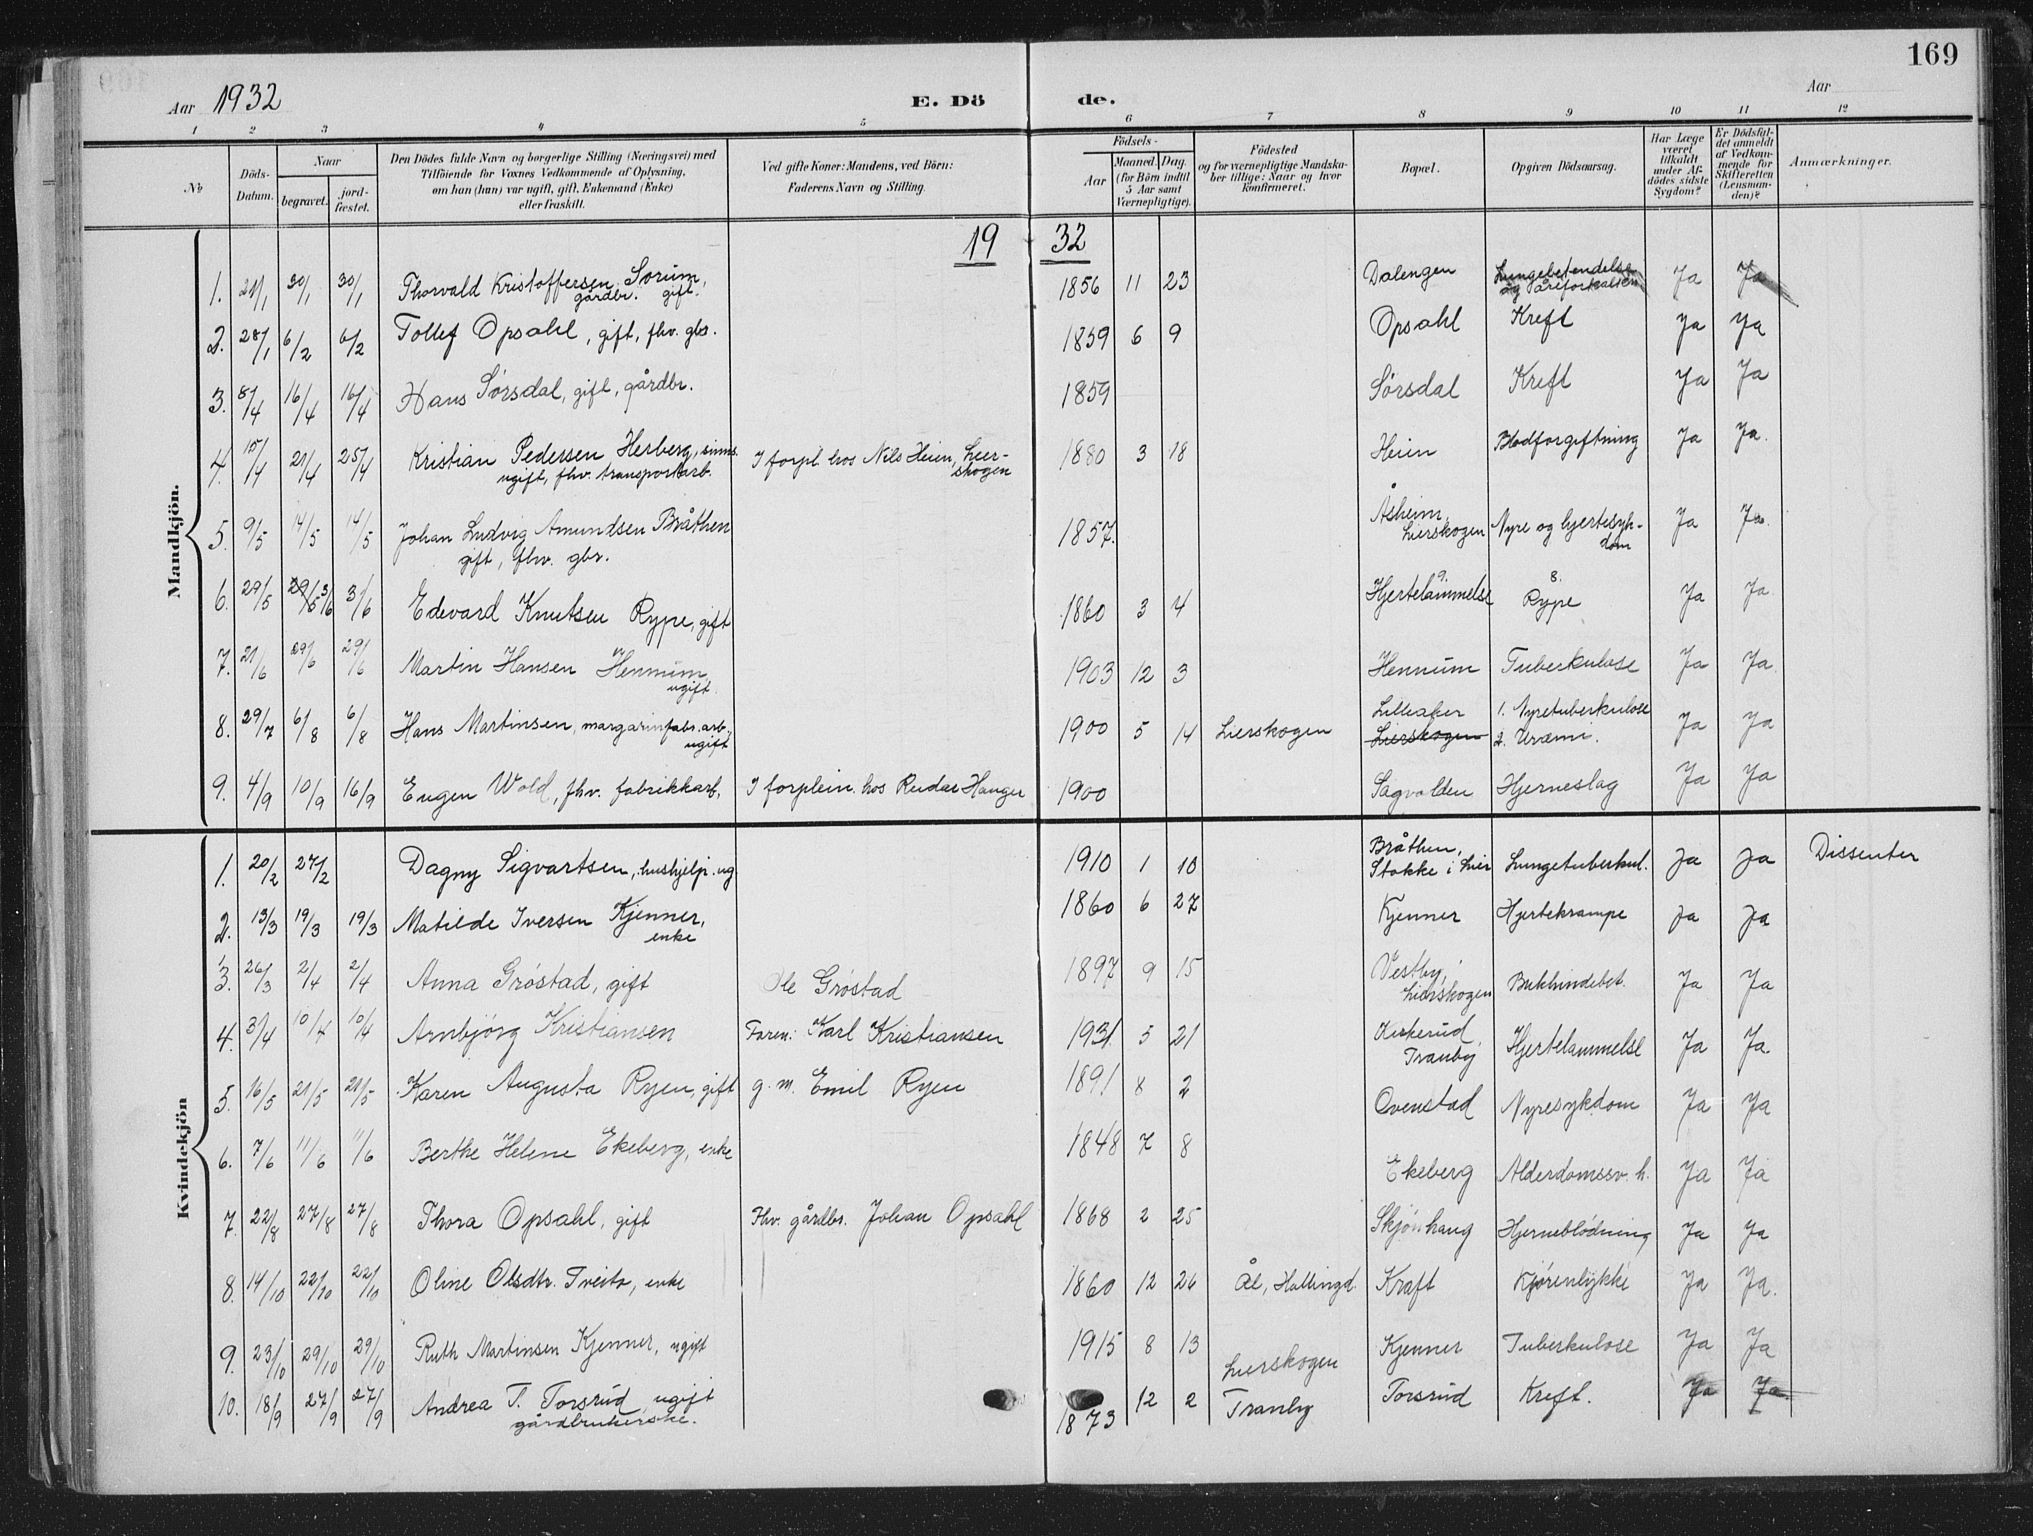 169
Aar 1932 E. Dö de. Aar
1 2 3 4 5 6 7 8 9 10 11 12
No
Döds-Datum.
Naar
begravet.
jord-fæstet.
Den Dödes fulde Navn og borgerlige Stilling (Næringsvei) med
Tilföiende for Voxnes Vedkommende af Oplysning,
om han (hun) var ugift, gift, Enkemand (Enke)
eller fraskilt.
Ved gifte Koner: Mandens, ved Börn:
Faderens Navn og Stilling.
Födsels-
Aar
Maaned. Dag.
(for Börn indtil
5 Aar samt
Værnepligtige).
Födested
og for værnepligtige Mandska-
ber tillige: Naar og hvor
konfirmeret.
Bopæl.
Opgiven Dödsaarsag.
Har Læge
været
tilkaldt
under Af-
dödes sidste
Sygdom?
Er Dödsfal-
det anmeldt
af Vedkom-
mende for
Skifteretten
(Lensman-
den)?
Anmærkninger.
19 32
Mandkjön.
1. 21/1 30/1 30/1 Thorvald Kristoffersen Sorum, gårdbr. gift. 1856 11 23 Dalengen Lungebetendelse og åreforkalkn. Ja Ja
2. 28/1 6/2 6/2 Tollef Opsahl, gift, fhv. gbr. 1859 6 9 Opsahl Kreft Ja Ja
3. 8/4 16/4 16/4 Hans Sørsdal, gift, gårdbr. 1859 Sørsdal Kreft Ja Ja
4. 15/4 21/4 25/4 Kristian Pedersen Herberg, sinns. ugift, fhv. transportarb. I forpl. hos Nils Heien, Lier-skogen 1880 3 18 Heien Blodforgiftning Ja Ja.
5. 9/5 14/5 14/5 Johan Ludvig Amundsen Bråthen gift, fhv. gbr. 1857. Åsheim, Lierskogen Nyre og hjertesyk-dom Ja Ja.
6. 29/5 29/5 3/6 3/6 Edevard Knutsen Rype, gift 1860 3 4 9. Hjertelammelse 8. Rype Ja Ja
7. 21/6 29/6 29/6 Martin Hansen Hennum, ugift 1903 12 3 Hennum Tuberkulose Ja Ja
8. 29/7 6/8 6/8 Hans Martinsen, margarinfabr. arb., ugift 1900 5 14 Lierskogen Lilleaker Lierskogen 1. Nyretuberkulose 2. Uræmi. Ja Ja
9. 4/9 10/9 16/9 Eugen Wold, fhv. fabrikkarb. I forplein. hos Reidar Hanger 1900 Sagvolden Hjerneslag Ja Ja
Kvindekjön
1. 20/2 27/2 Dagny Sigvartsen, hushjelp. ug 1910 1 10 Bråthen, Stokke i Lier Lungetuberkul. Ja Ja Dissenter
2. 13/3 19/3 19/3 Matilde Iversen Kjenner, enke 1860 6 27 Kjenner Hjertekrampe Ja Ja
3. 26/3 2/4 2/4 Anna Grøstad, gift Ole Grøstad 1897 9 15 Vestby, Lierskogen Bukhindebet. Ja Ja
4. 3/4 10/4 10/4 Arnbjörg Kristiansen Faren: Karl Kristiansen 1931. 5 21 Kirkerud, Tranby Hjertelammelse Ja Ja
5. 16/5 21/5 21/5 Karen Augusta Ryen, gift g. m. Emil Ryen 1891 8 2 Ovenstad Nyresykdom Ja Ja
6. 7/6 11/6 11/6 Berthe Helene Ekeberg, enke 1848 7 8 Ekeberg Alderdomssv. h. Ja Ja
7. 22/8 27/8 27/8 Thora Opsahl, gift Fhv. gårdbr. Johan Opsahl 1868 2 25 Skjønhaug Hjerneblødning Ja Ja
8. 14/10 22/10 22/10 Oline Olsdtr. Tveito, enke 1860 12 26 Ål, Hallingd. Kraft Kjørenlykke Ja Ja.
9. 23/10 29/10 29/10 Ruth Martinsen Kjenner, ugift 1915 8 13 Lierskogen Kjenner Tuberkulose Ja Ja
10. 18/9 27/9 27/9 Andrea T. Torsrud, ugift gårdbrukerske. 1873 12 2 Tranby Torsrud Kreft. Ja Ja